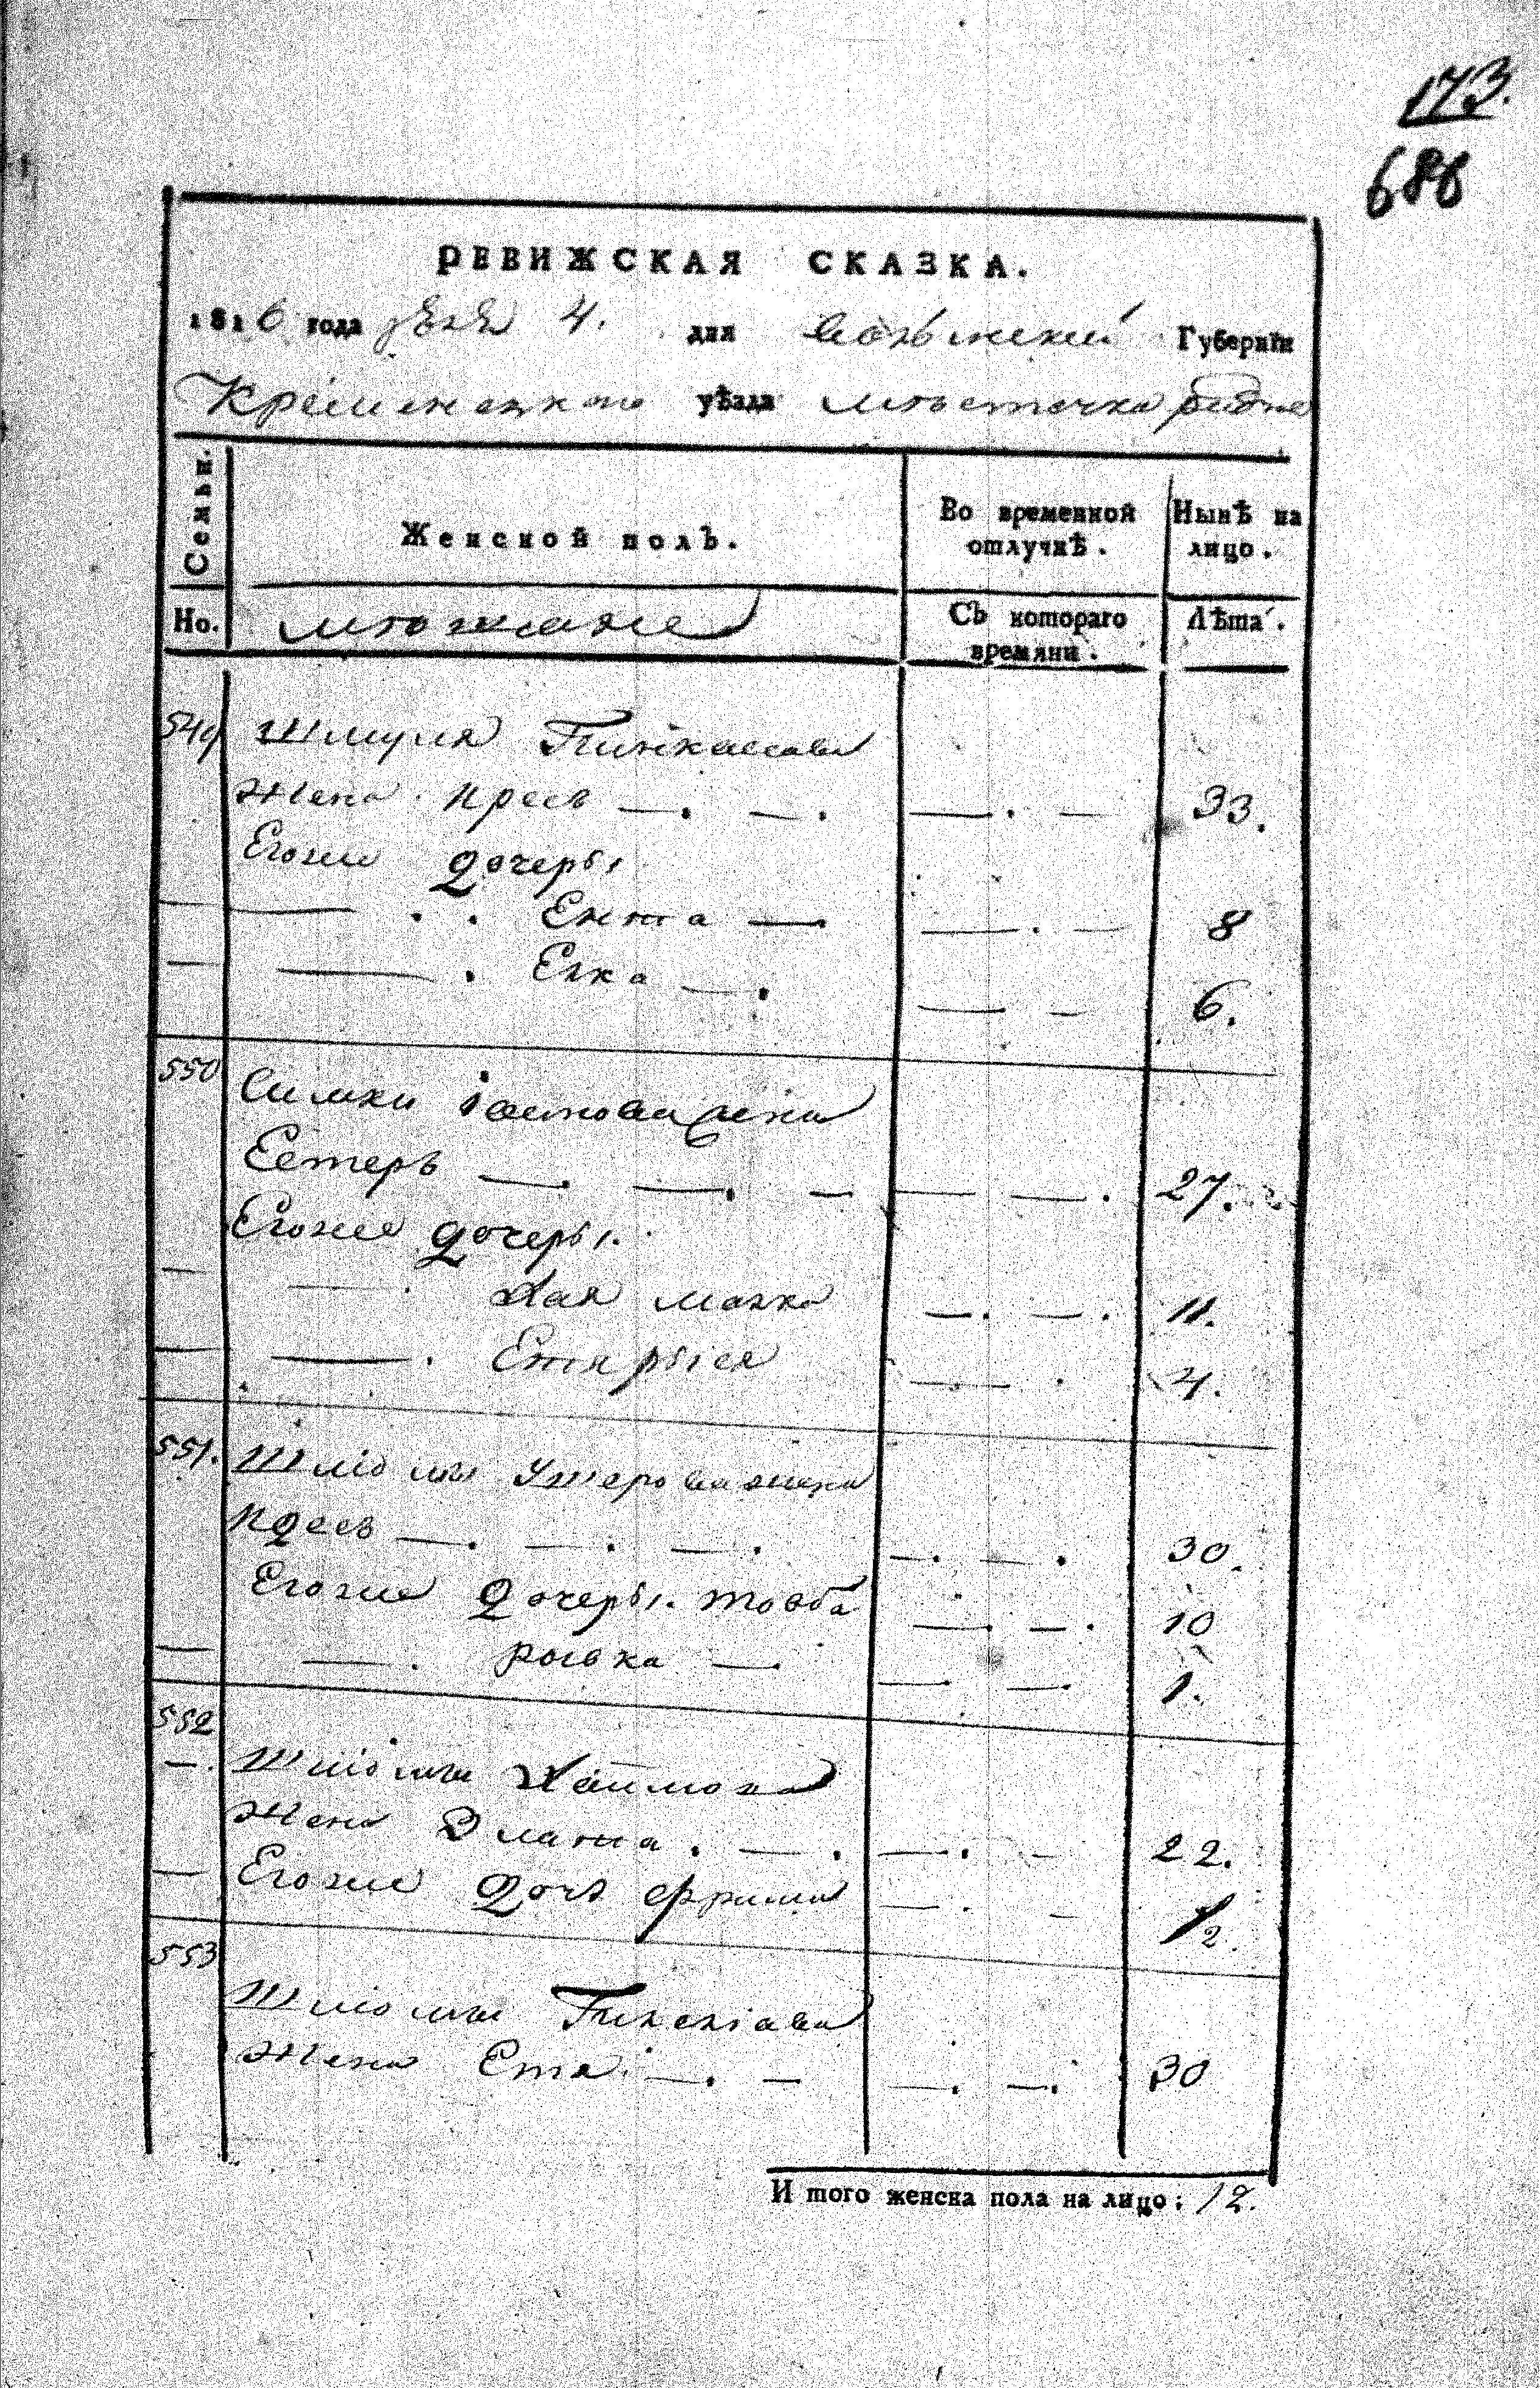 173.
688
РЕВИЖСКАЯ СКАЗКА.
1816 года 4. дня Волынской Губернїи
Кременецкого уѣзда мѣстечка
Семьи.
Женской полъ.
Во временной отлучкѣ.
Нынѣ на лицо.
Но.
мѣщане
Съ котораго времяни.
Лѣта.
549 Шмуля Пинкасова
жена Крейс —. —. —. — 33.
Егоже дочеры
— —. . Ента —. —. — 8
— —. Елка —. — — 6.
550 Симки жена
Естеръ —. —. — — —. 27.
Егоже дочеры.
— —. Хая малка —. —. 11.
— —. —. 4.
551. Шліомы Ушерова жена
—. —. —. —. —. 30.
Егоже дочеры. товба —. —. 10
— —. ривка —. —. —. 1.
552
—. Шліомы Хаимова
жена Злата. —. —. — 22.
— Егоже дочь фрима —. — 1/2
553
Шліомы
жена Етя. —. — —. —. 30
И того женска пола на лицо: 12.